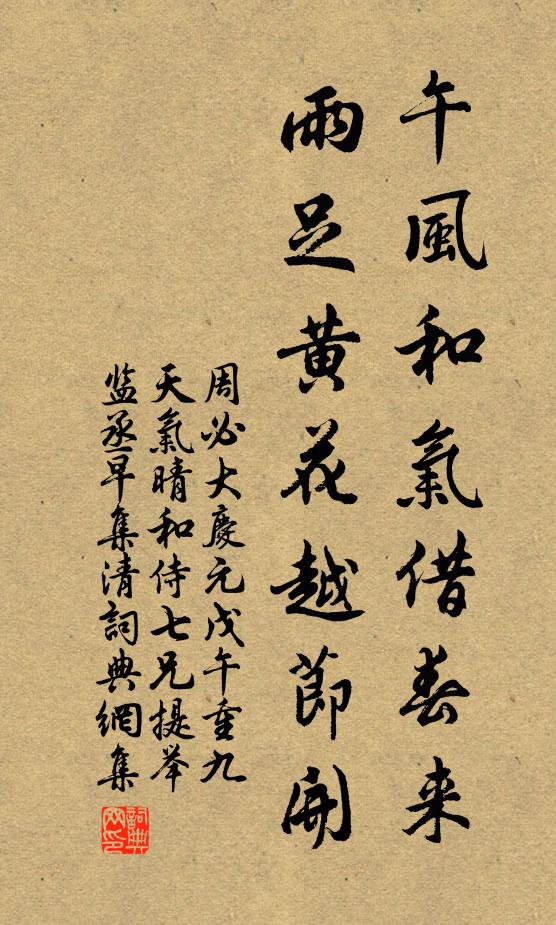 午風和氣借春来
雨足黄花越節開
周必大慶元戊午重九
天氣晴和侍七兄提举
監丞早集清詞典網集
詞典网印